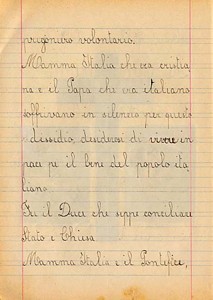 prigoniero volontario.
Mamma Italia che era cristia
na e il Papa che era italiano
soffrivano in silenzio per questo
dissidio, desiderosi di vivere in
pace pe il bene del popolo ita
liano.
Fu il Duce che seppe conciliare
Stato e Chiesa
Mamma Italia e il Pontefice,